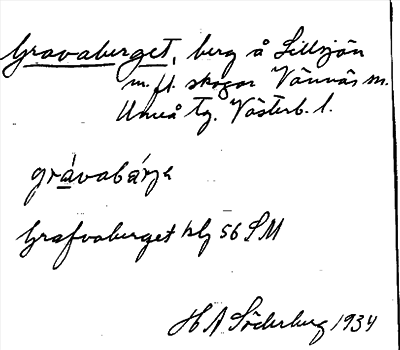 Gravaberget, berg å Lillsjön
m. fl. skogar Vännäs m.
Umeå tg. Västerb. l.
grávabárje
Grafvaberget klj 56 SM
H A Söderberg 1934